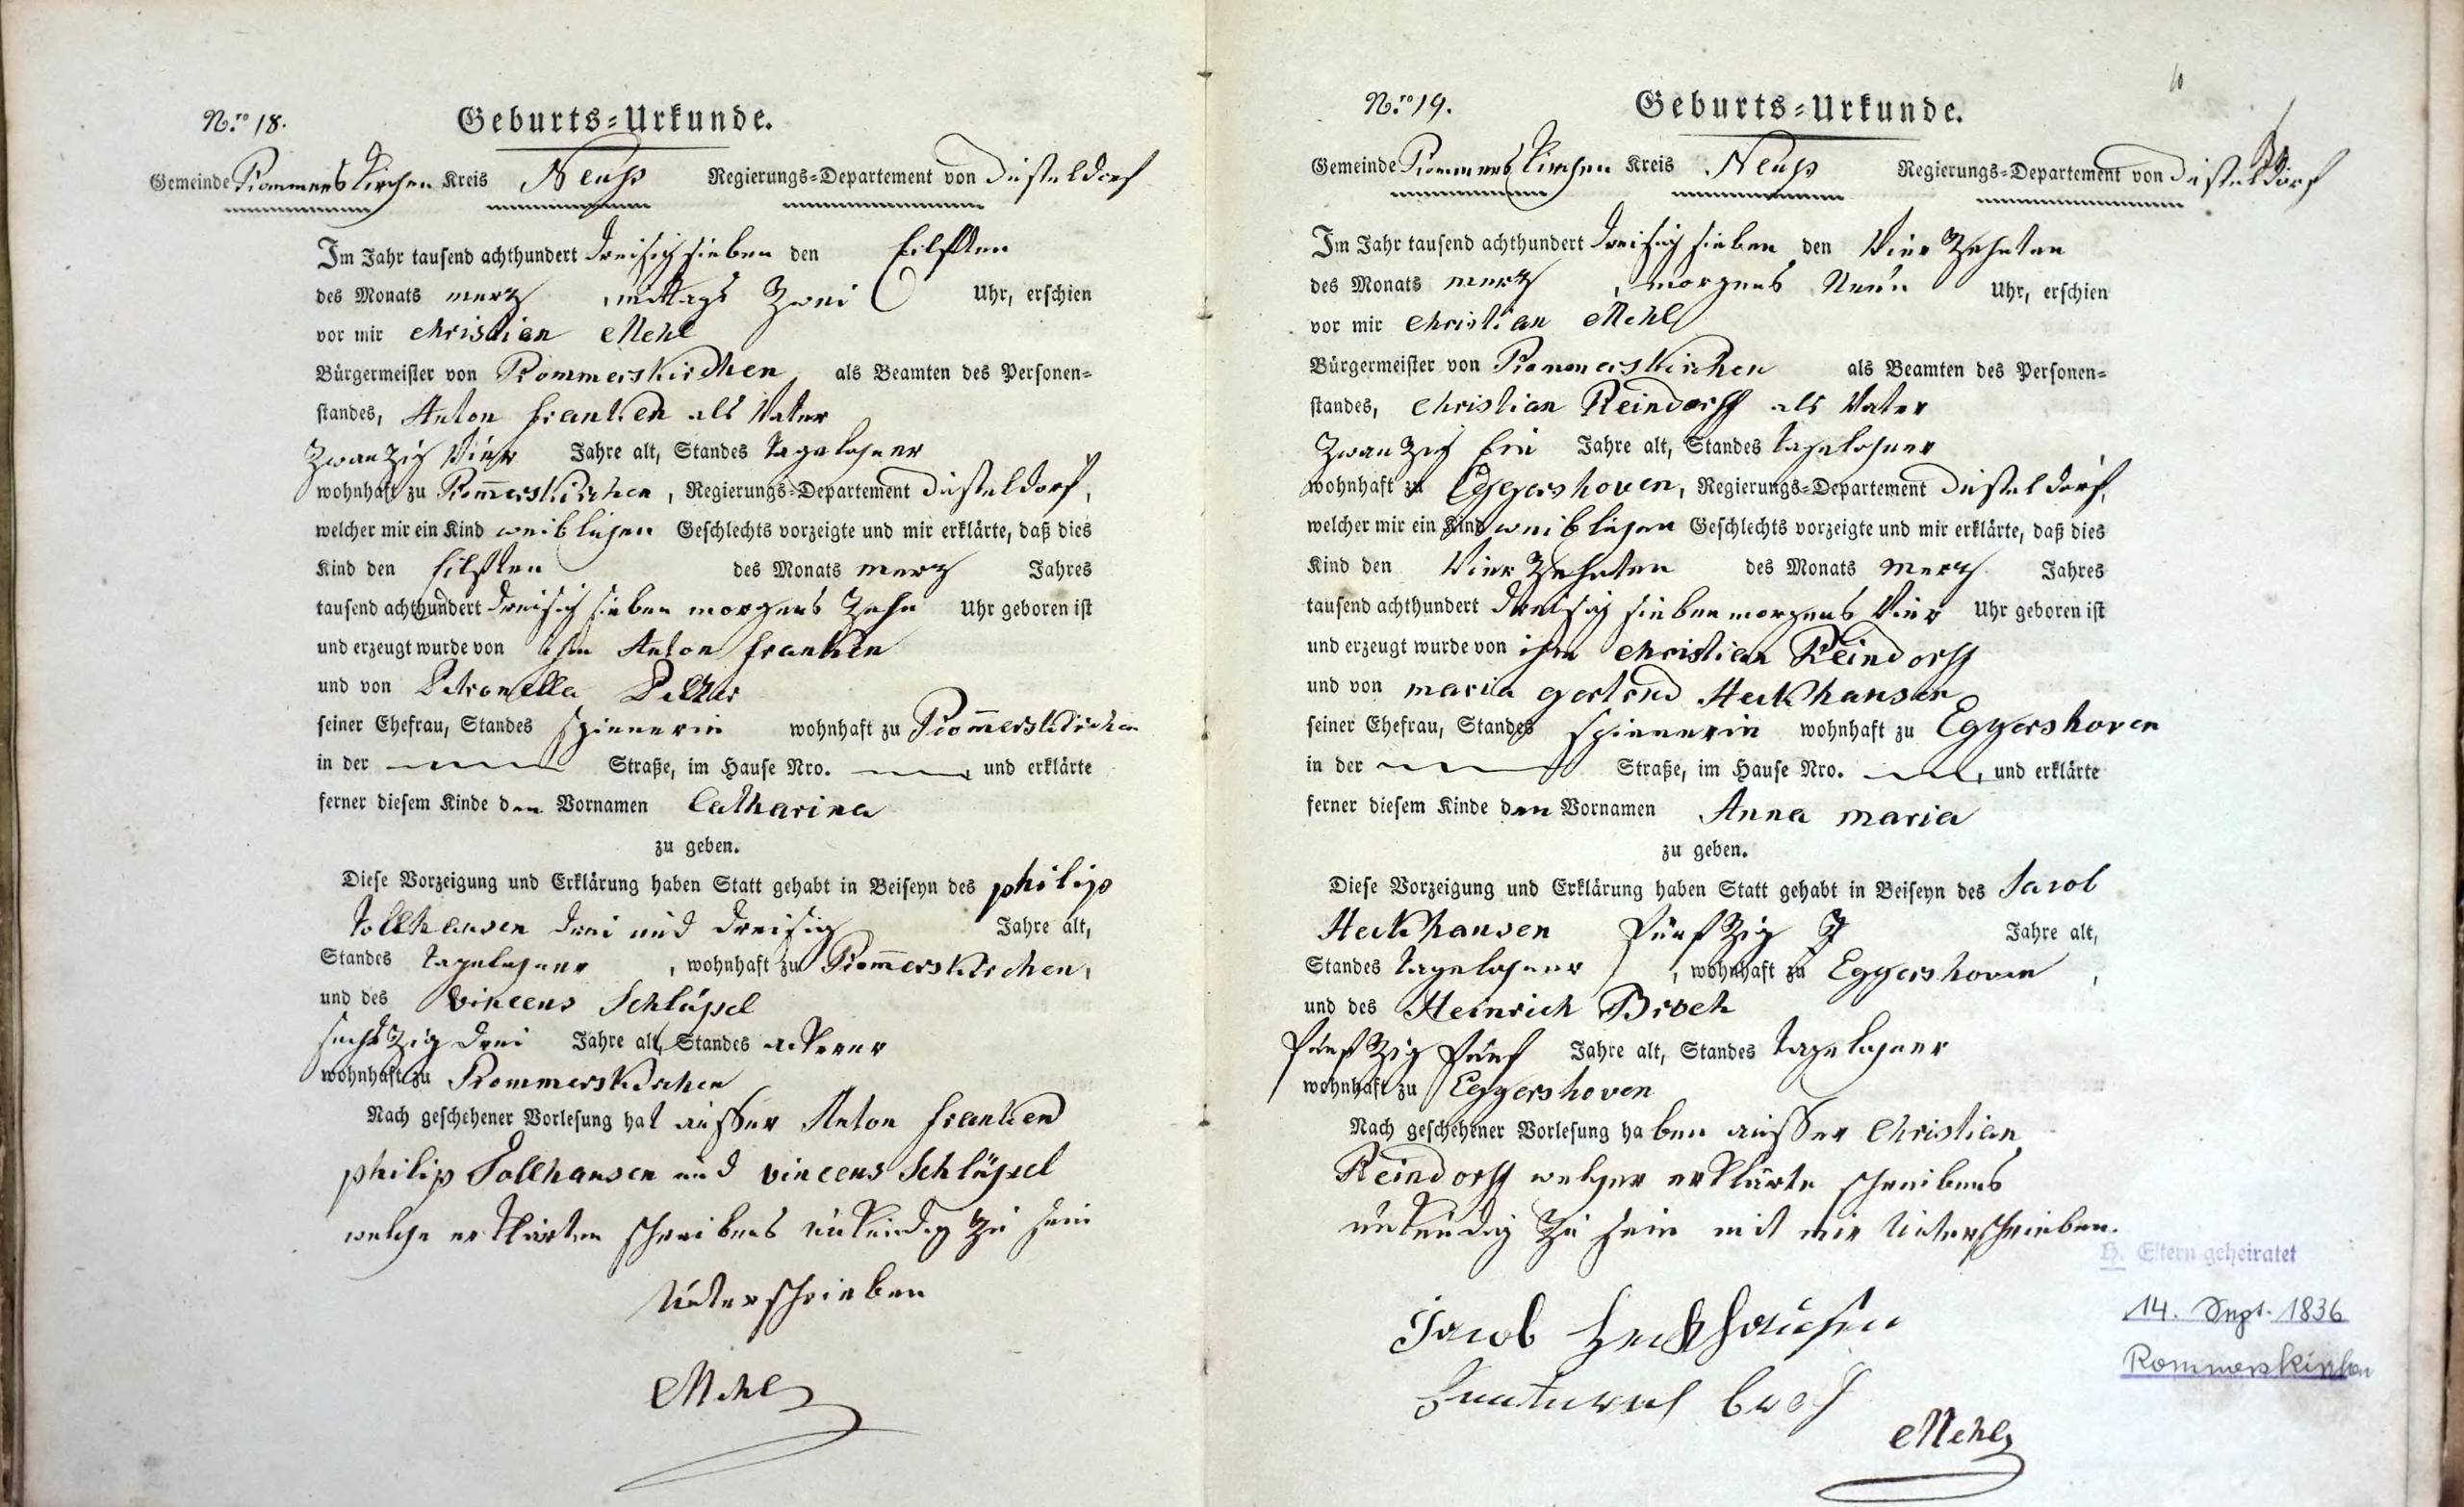 N.ro 18.
Geburts=Urkunde.
Gemeinde Rommerskirchen Kreis Neuß Regierungs=Departement von Düsseldorf
Im Jahr tausend achthundert dreisig sieben den Eilften
des Monats merz, mittags Zwei Uhr, erschien
vor mir Christian Mehl
Bürgermeister von Rommerskirchen als Beamten des Personen=
standes, Anton Franken als Vater
Zwanzig Vier Jahre alt, Standes Tagelohner
wohnhaft zu Rom̄erskirchen, Regierungs=Departement Düsseldorf,
welcher mir ein Kind weiblichen Geschlechts vorzeigte und mir erklärte, daß dies
Kind den Eilften des Monats merz Jahres
tausend achthundert dreisig sieben morgens Zehn Uhr geboren ist
und erzeugt wurde von ihm Anton Franken
und von Petronella Peltzer
seiner Ehefrau, Standes Spinnerin wohnhaft zu Rom̄erskirchen
in der Straße, im Hause Nro. , und erklärte
ferner diesem Kinde den Vornamen Catharina
zu geben.
Diese Vorzeigung und Erklärung haben Statt gehabt in Beiseyn des philip
Tollhausen drei und dreisig Jahre alt,
Standes Tagelohner, wohnhaft zu Rom̄erskirchen,
und des Vincens Schlüpel
sechszig drei Jahre alt, Standes ackerer
wohnhaft zu Rommerskirchen
Nach geschehener Vorlesung hat ausser Anton Franken
philip Tollhausen und vincens Schlüpel
welche erklärten schreibens unkündig zu sein
Unterschrieben
Mehl
N.ro 19.
Geburts=Urkunde.
Gemeinde Rommerskirchen Kreis Neuß Regierungs=Departement von Düsseldorf
Im Jahr tausend achthundert dreisig sieben den Vier Zehnten
des Monats merz, morgens Neun Uhr, erschien
vor mir Christian Mehl
Bürgermeister von Rommerskirchen als Beamten des Personen=
standes, Christian Reindorff als Vater
Zwanzig Ein Jahre alt, Standes Tagelohner
wohnhaft zu Eggershoven, Regierungs=Departement Düsseldorf,
welcher mir ein Kind weiblichen Geschlechts vorzeigte und mir erklärte, daß dies
Kind den Vier Zehnten des Monats Merz Jahres
tausend achthundert dreisig sieben morgens Vier Uhr geboren ist
und erzeugt wurde von ihm Christian Reindorff
und von maria gertrud Heckhausen
seiner Ehefrau, Standes Spinnerin wohnhaft zu Eggershoven
in der Straße, im Hause Nro. , und erklärte
ferner diesem Kinde den Vornamen Anna maria
zu geben.
Diese Vorzeigung und Erklärung haben Statt gehabt in Beiseyn des Jacob
Heckhausen Fünfzig Jahre alt,
Standes Tagelohner, wohnhaft zu Eggershoven,
und des Heinrich Broch
Fünfzig Fünf Jahre alt, Standes Tagelohner
wohnhaft zu Eggershoven
Nach geschehener Vorlesung haben ausser Christian
Reindorff welcher erklärte schreibens
unkündig zu sein mit mir Unterschrieben.
Jacob Heckhausen
Mehl
H. Eltern geheiratet
14. Sept. 1836
Rommerskirchen